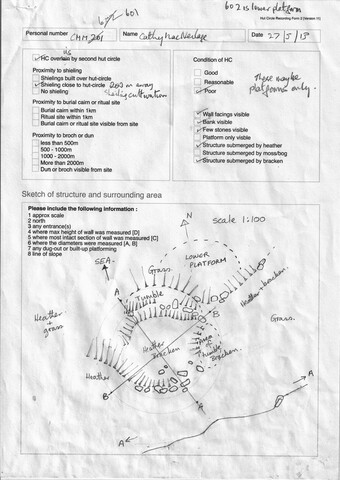 602 is lower platform
601
Hut Circle Recording Form 2 (Version 11)
Personal number CHM 201
Name Cathy MacIver
Date 27/5/13
HC overlain by second hut circle
Proximity to shieling
Shielings built over hut-circle
Shieling close to hut-circle 200 m away
No shieling
Proximity to burial cairn or ritual site
Burial cairn or ritual site within 1km
Ritual site within 1km
Burial cairn or ritual site visible from site
Proximity to broch or dun
less than 500m
500 - 1000m
1000 - 2000m
More than 2000m
Dun or broch visible from site
Condition of HC
Good
Reasonable
Poor
There maybe
platforms only.
Wall facings visible
Bank visible
Few stones visible
Platform only visible
Structure submerged by heather
Structure submerged by moss/bog
Structure submerged by bracken
Sketch of structure and surrounding area
Please include the following information :
1 approx scale
2 north
3 any entrance(s)
4 where max height of wall was measured [D]
5 where most intact section of wall was measured [C]
6 where the diameters were measured [A, B]
7 any dug-out or built-up platforming
8 line of slope
N
scale 1:100
SEA
Grass
LOWER
PLATFORM
A
Tumble
Heather + bracken
B
Heather
+
grass
Grass.
Heather
Bracken
Area
of
Tumble
Bracken.
Heather
B
A
A
A